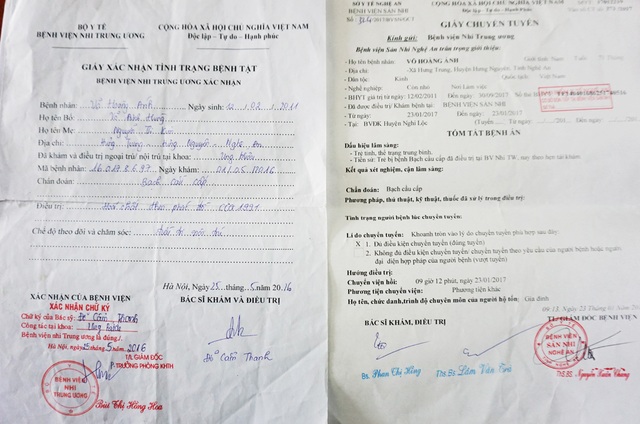 BỘ Y TẾ
BỆNH VIỆN NHI TRUNG ƯƠNG
CỘNG HÒA XÃ HỘI CHỦ NGHĨA VIỆT NAM
Độc lập - Tự do - Hạnh phúc
GIẤY XÁC NHẬN TÌNH TRẠNG BỆNH TẬT
BỆNH VIỆN NHI TRUNG ƯƠNG XÁC NHẬN
Bệnh nhân: Võ Hoàng Anh Ngày sinh: 12/02/2011
Họ tên Bố
Họ tên Mẹ Nguyễn T. Kim
Địa chỉ: Hưng Trung - Hưng Nguyên - Nghệ An
Đã khám và điều trị ngoại trú/ nội trú tại khoa:
Mã bệnh nhân:
Chẩn đoán: Bạch cầu cấp
Điều trị: Hoá chất theo phác đồ CCG 1991
Chế độ theo dõi và chăm sóc:
Hà Nội, Ngày 25 tháng 5 năm 2016
XÁC NHẬN CỦA BỆNH VIỆN
BÁC SĨ KHÁM VÀ ĐIỀU TRỊ
XÁC NHẬN CHỮ KÝ
Chữ ký của Bác sỹ: Đỗ Cẩm Thanh
Công tác tại khoa:
Bệnh viện nhi Trung ương là đúng./.
Hà Nội, ngày 25 tháng 5 2016
TL GIÁM ĐỐC
TRƯỞNG PHÒNG KHTH
Đỗ Cẩm Thanh
BỆNH VIỆN
NHI
TRUNG ƯƠNG
Bùi Thị Hồng Hoa
SỞ Y TẾ NGHỆ AN
BỆNH VIỆN SẢN NHI
CỘNG HÒA XÃ HỘI CHỦ NGHĨA VIỆT NAM
Độc lập - Tự do - Hạnh phúc
GIẤY CHUYỂN TUYẾN
Kính gửi: Bệnh viện Nhi Trung ương
Bệnh viện Sản Nhi Nghệ An trân trọng giới thiệu:
- Họ tên bệnh nhân: VÕ HOÀNG ANH Giới tính: Nam
- Địa chỉ: Xã Hưng Trung, Huyện Hưng Nguyên, Tỉnh Nghệ An
- Dân tộc: Kinh Quốc tịch: Việt Nam
- Nghề nghiệp: Con nhỏ Nơi Làm việc
- BHYT giá trị từ ngày: 12/02/2011 Đến ngày: 30/09/2017
- Đã được điều trị/ Khám bệnh tại: BỆNH VIỆN SẢN NHI
- Từ ngày: 23/01/2017 Đến ngày: 23/01/2017
- Tại: BVĐK Huyện Nghi Lộc
TÓM TẮT BỆNH ÁN
Dấu hiệu lâm sàng:
- Trẻ tỉnh, thể trạng trung bình.
- Tiền sử: Trẻ bị bệnh Bạch cầu cấp đã điều trị tại BV Nhi TW, nay theo hẹn tái khám.
Kết quả xét nghiệm, cận lâm sàng:
Chẩn đoán: Bạch cầu cấp
Phương pháp, thủ thuật, kỹ thuật, thuốc đã xử lý trong điều trị:
Tình trạng người bệnh lúc chuyển tuyến:
Lí do chuyển tuyến: Khoanh tròn vào lý do chuyển tuyến phù hợp sau đây:
X 1. Đủ điều kiện chuyển tuyến (đúng tuyến)
2. Không đủ điều kiện chuyển tuyến: chuyển tuyến theo yêu cầu của người bệnh hoặc người
đại diện hợp pháp của người bệnh (vượt tuyến)
Hướng điều trị:
Chuyển viện hồi: 09 giờ 12 phút, ngày 23/01/2017
Phương tiện chuyển viện: Phương tiện khác
Họ tên, chức danh, trình độ chuyên môn của người hộ tống: Gia đình
BÁC SĨ KHÁM, ĐIỀU TRỊ
GIÁM ĐỐC BỆNH VIỆN
BỆNH VIỆN
SẢN NHI
NGHỆ AN
Bs. Phan Thị Hồng
Ths.Bs. Lâm Văn Trù
Ths.BS. Nguyễn Xuân Chung